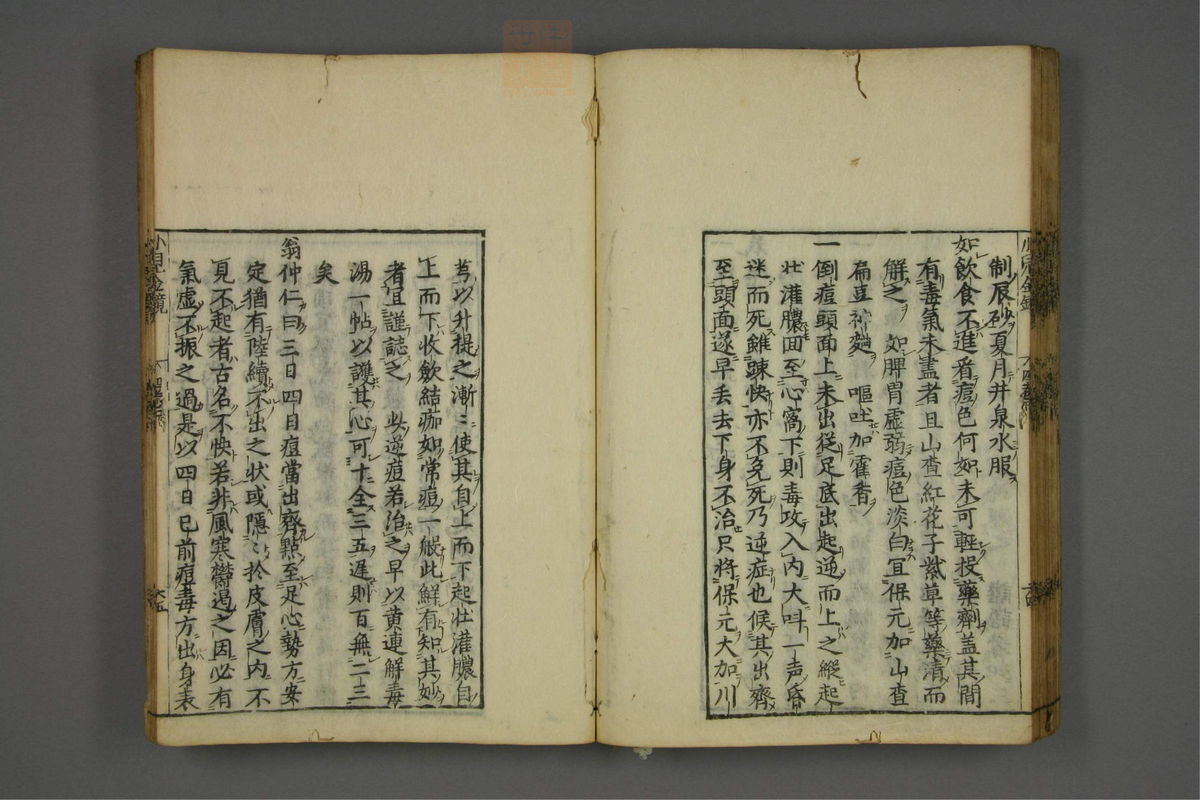 制辰砂夏月井泉水服
如飲食不進看痘色何如未可輕投藥劑盖其間
有毒氣未盡者且山查紅花子紫草等藥清而
解之　如脾胃虛弱痘色淡白宜保元加山查
扁豆神麯　嘔吐加藿香
一倒痘頭面上未出從足底出起逆而上之縱起
壮灌膿回至心窩下則毒攻入内大叫一声昏
迷而死雖踈快亦不免死乃逆症也候其出齊
至頭面遂早丢去下身不治只將保元大加川
芎以升提之漸〻使其自上而下起壮灌膿自
上而下收歛結痂如常痘一般此鮮有知其妙
者宜謹誌之　此逆痘若治之早以黄連解毒
湯一帖以護其心可十全三五遲則百無二三
矣
翁仲仁曰三日四日痘當出齊點至足心勢方安
定猶有陸續不出之状或隱〻於皮膚之内不
見不起者古名不快若非風寒欝遏之因必有
氣虛不振之過是以四日已前痘毒方出身表
小兒金鏡